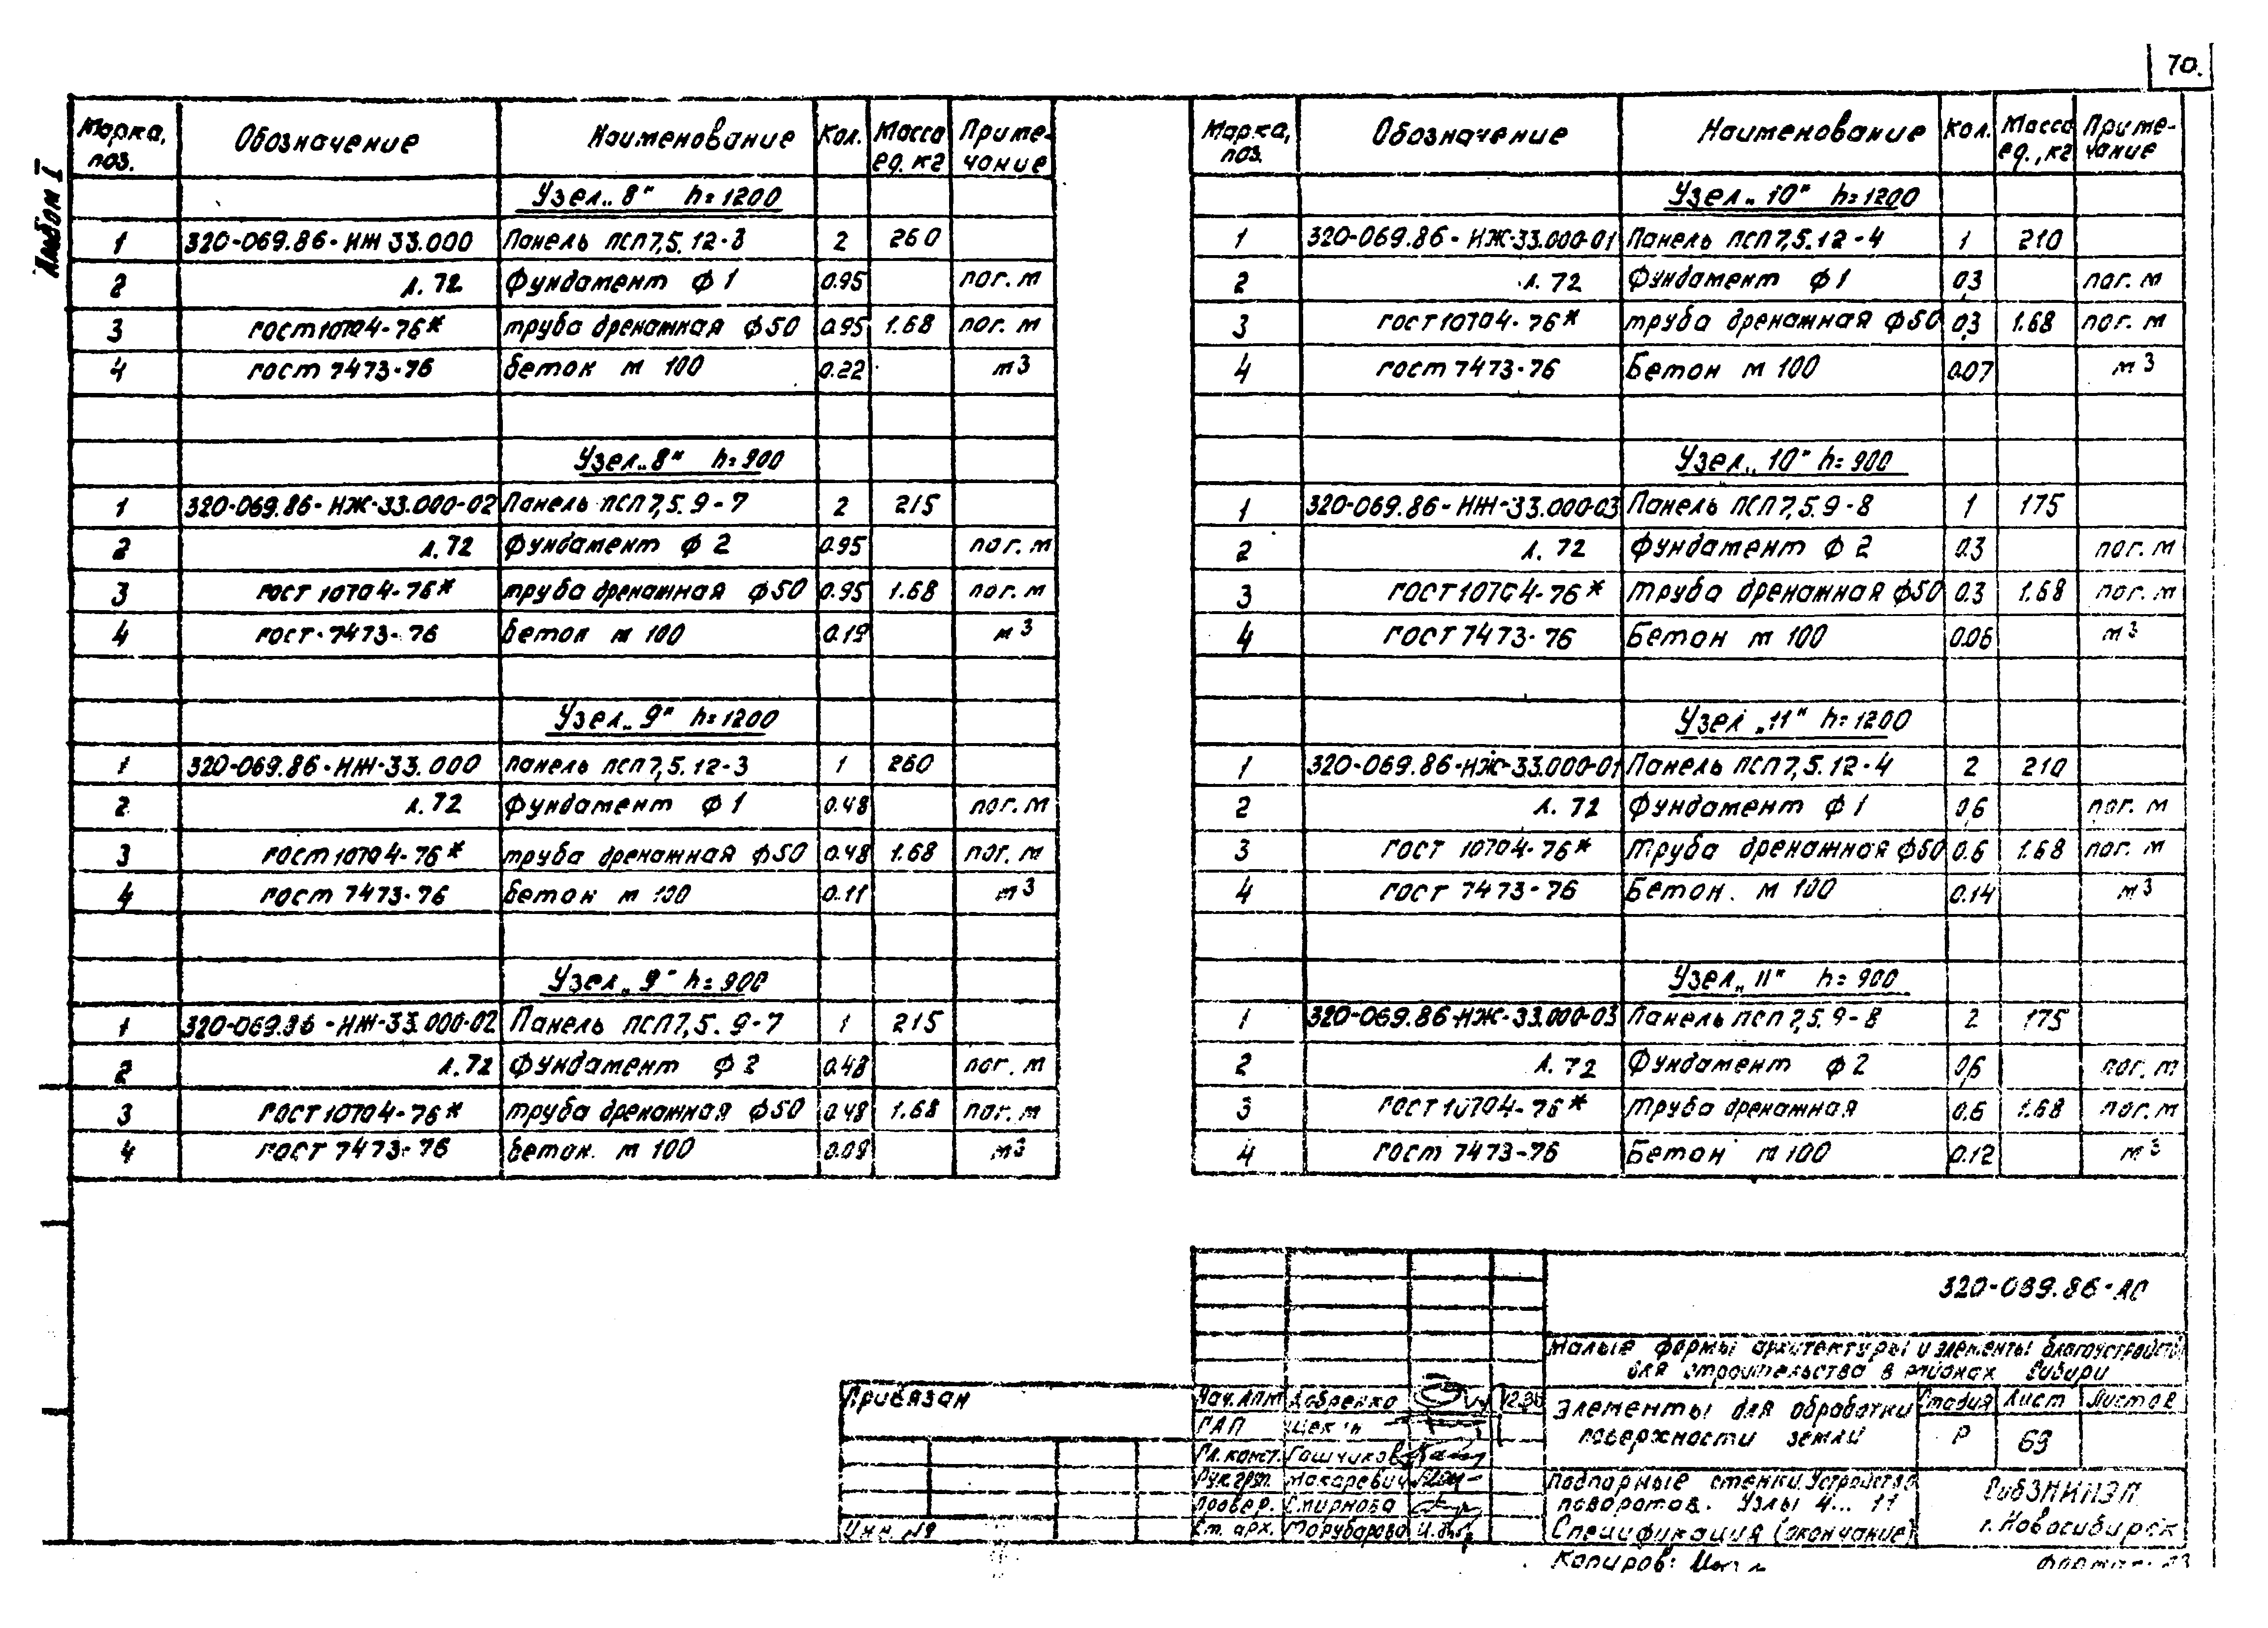 70.
Альбом I
Марка, поз. Обозначение Наименование Кол. Масса ед. кг Приме-чание
Узел „8" h=1200
1 320-069.86-НЖ 33.000 Панель ПСП 7,5.12-3 2 260
2 л. 72 Фундамент ф 1 0.95 пог. м
3 гост 10704-76* труба дренажная ф50 0.95 1.68 пог. м
4 гост 7473-76 бетон м 100 0.22 м3
Узел „8" h=900
1 320-069.86-НЖ-33.000-02 Панель ПСП 7,5.9-7 2 215
2 л. 72 Фундамент ф 2 0.95 пог. м
3 гост 10704-76* труба дренажная ф50 0.95 1.68 пог. м
4 гост 7473-76 бетон м 100 0.19 м3
Узел „9" h=1200
1 320-069.86-НЖ-33.000 панель псп 7,5.12-3 1 260
2 л. 72 Фундамент ф 1 0.48 пог. м
3 гост 10704-76* труба дренажная ф50 0.48 1.68 пог. м
4 гост 7473-76 бетон м 100 0.11 м3
Узел „9" h=900
1 320-069.86-НЖ-33.000-02 Панель ПСП 7,5.9-7 1 215
2 л. 72 Фундамент ф 2 0.48 пог. м
3 гост 10704-76* труба дренажная ф50 0.48 1.68 пог. м
4 гост 7473-76 бетон. м 100 0.09 м3
Марка, поз. Обозначение Наименование Кол. Масса ед., кг Приме-чание
Узел „10" h=1200
1 320-069.86-НЖ-33.000-01 Панель ПСП 7,5.12-4 1 210
2 л. 72 Фундамент ф 1 0,3 пог. м
3 гост 10704-76* труба дренажная ф50 0,3 1.68 пог. м
4 гост 7473-76 Бетон м 100 0.07 м3
Узел „10" h=900
1 320-069.86-НЖ-33.000-03 Панель ПСП 7,5.9-8 1 175
2 л. 72 Фундамент ф 2 0.3 пог. м
3 гост 10704-76* труба дренажная ф50 0.3 1.68 пог. м
4 гост 7473-76 Бетон м 100 0.06 м3
Узел „11" h=1200
1 320-069.86-НЖ-33.000-01 Панель ПСП 7,5.12-4 2 210
2 л. 72 Фундамент ф 1 0,6 пог. м
3 гост 10704-76* труба дренажная ф50 0.6 1.68 пог. м
4 гост 7473-76 Бетон. м 100 0.14 м3
Узел „11" h=900
1 320-069.86-НЖ-33.000-03 Панель псп 7,5.9-8 2 175
2 л. 72 Фундамент ф 2 0,6 пог. м
3 гост 10704-76* труба дренажная 0.6 1.68 пог. м
4 гост 7473-76 Бетон м 100 0.12 м3
320-069.86-АС
Малые формы архитектуры и элементы благоустройства
для строительства в районах Сибири
Элементы для обработки поверхности земли
Стадия Лист Листов
Р 69
Подпорные стенки. Устройство
поворотов. Узлы 4... 11
Спецификация (окончание)
СибЗНИИЭП
г. Новосибирск
Привязан
Инв. №
Нач. АПМ Бобренко
ГАП
Гл. конст. Гашчиков
Рук. груп. Макаревич
Провер. Смирнова
Ст. арх. Тарубарова
Копиров:
Формат: А3